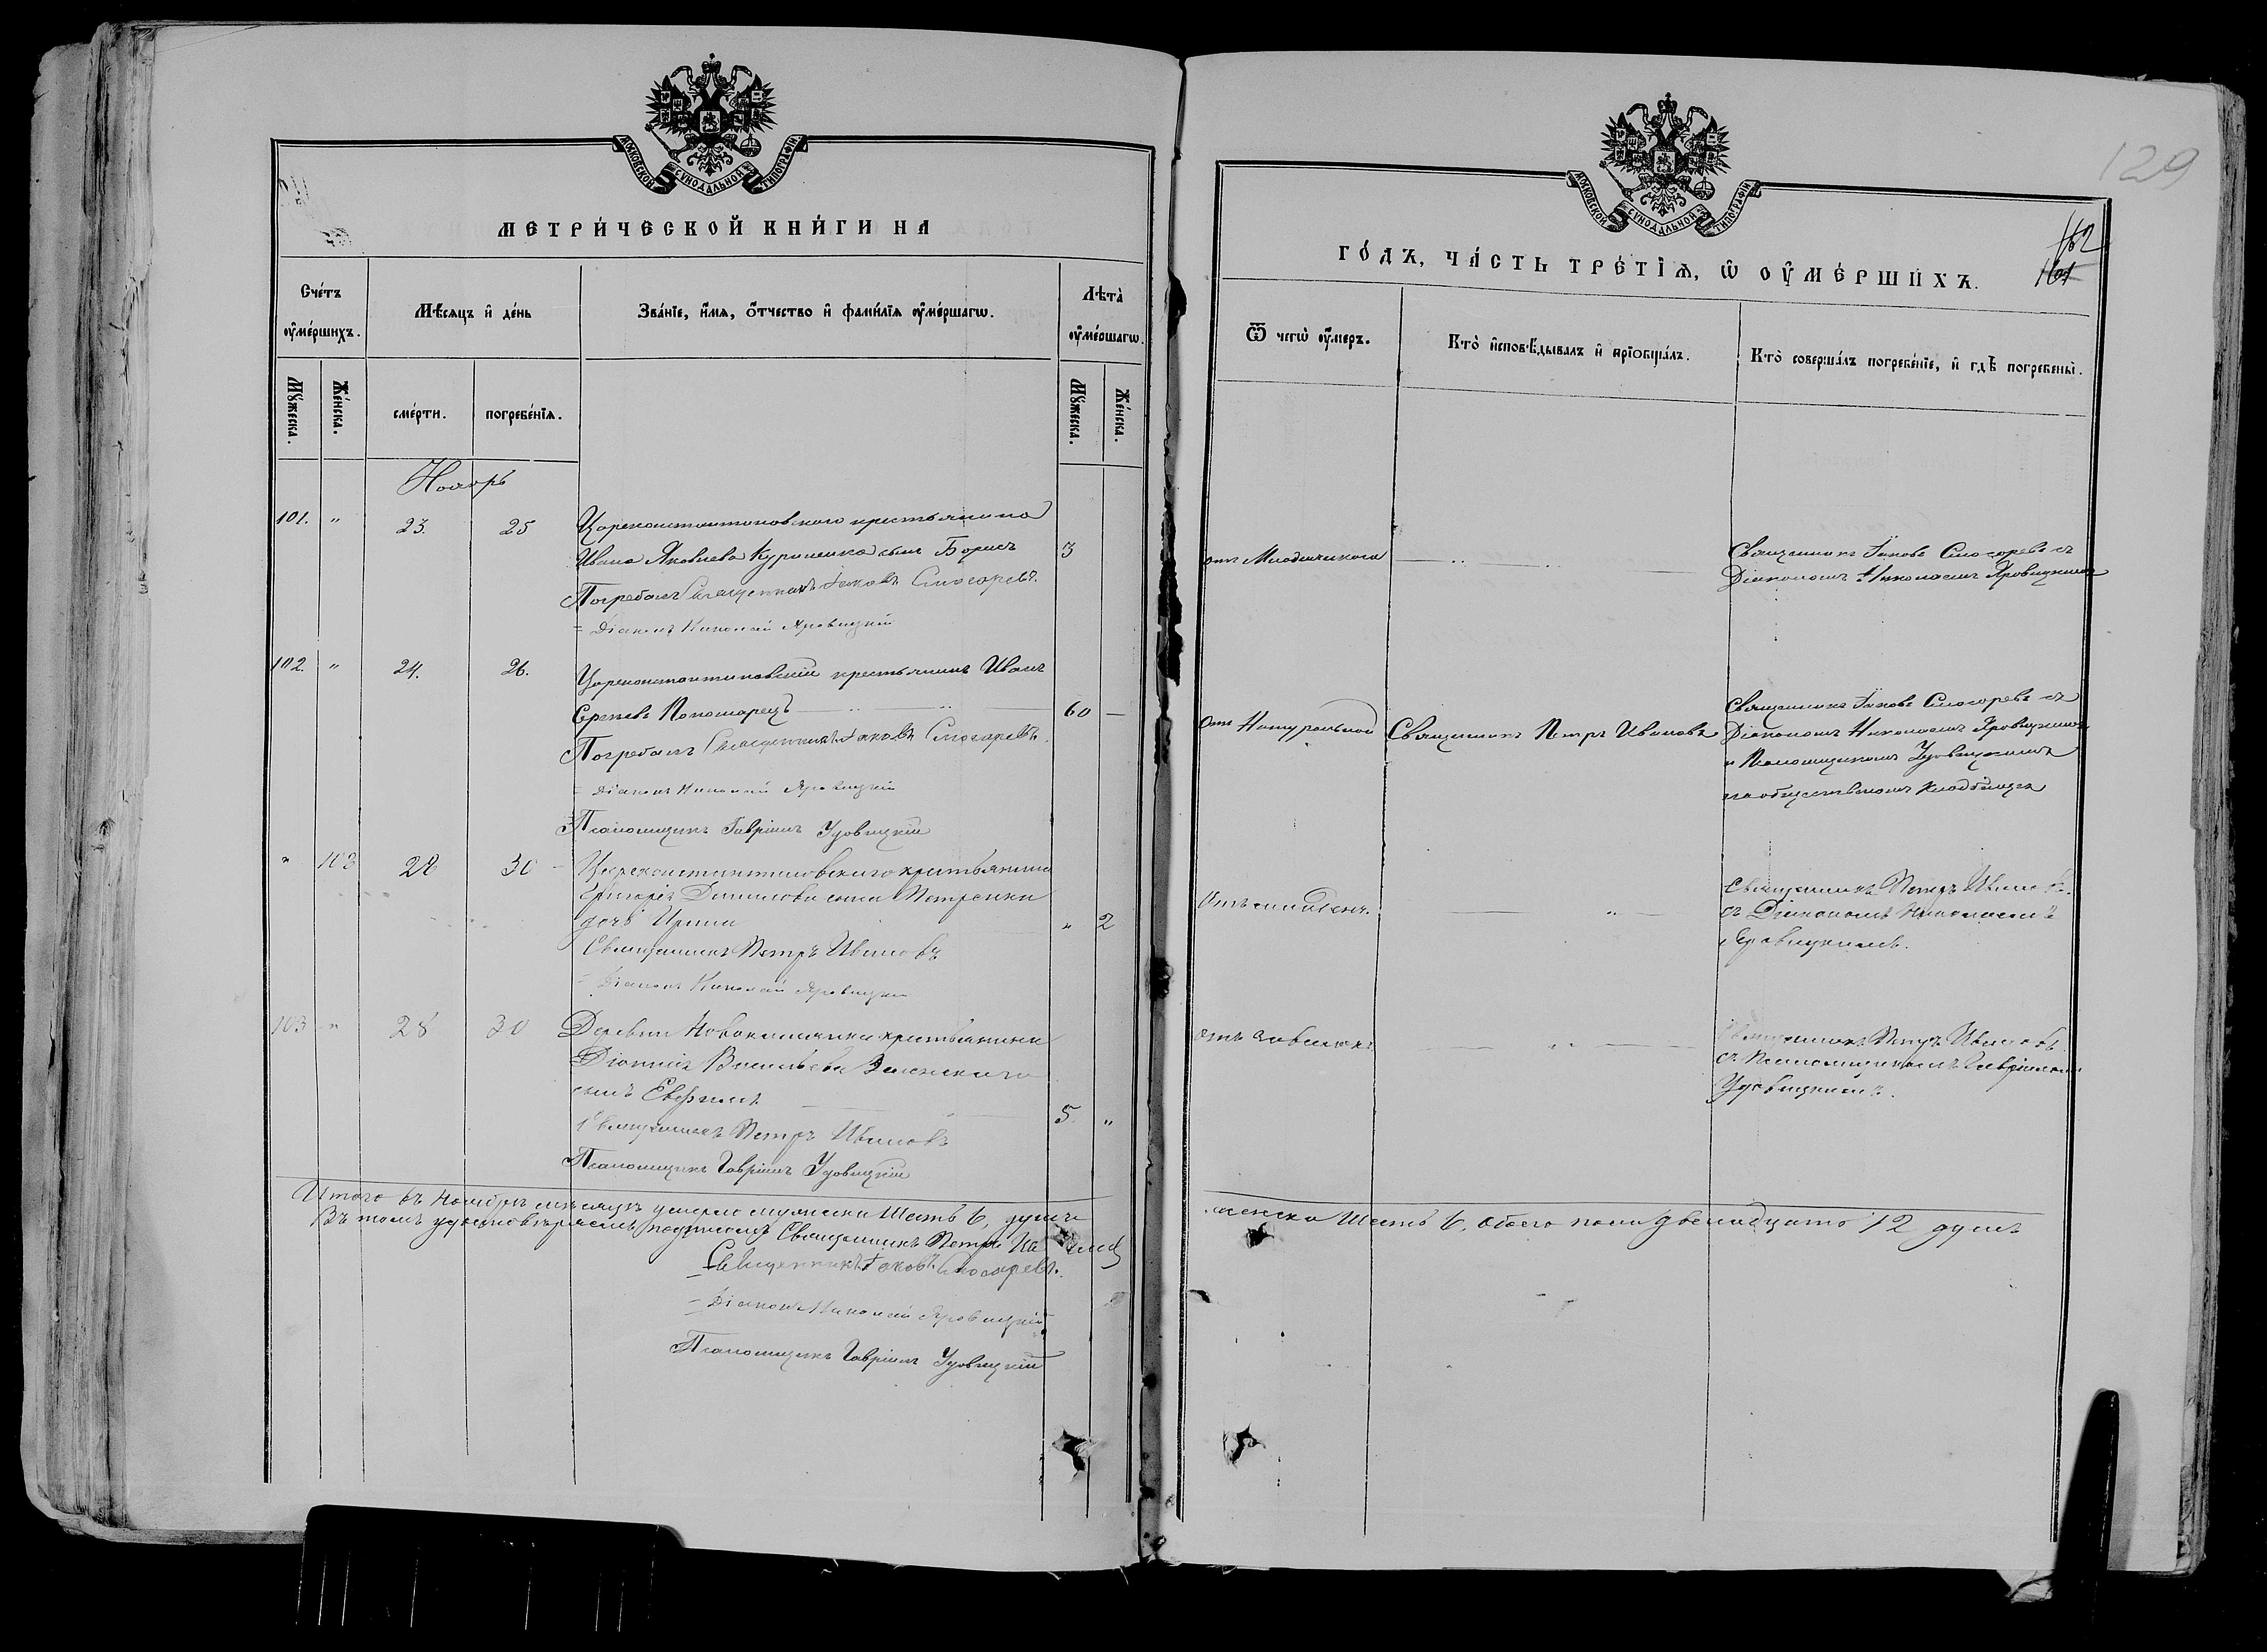 МОСКОВСКОЙ СѴНОДАЛЬНОЙ ТИПОГРАФІИ
МЕТРИ́ЧЕСКОЙ КНИ́ГИ НА
Сче́тъ ᲂу҆ме́ршихъ.
Мѣ́сяцъ и҆ де́нь
Зва́нїе, и҆́мя, ѻ҆́тчество и҆ фами́лїя ᲂу҆ме́ршагѡ.
Лѣ̀та ᲂу҆ме́ршагѡ.
Мꙋ́жеска.
Же́нска.
сме́рти.
погребе́нїя.
Мꙋ́жеска.
Же́нска.
Ноябрь
101. " 23. 25 Цареконстантиновского крестьянина
Ивана Яковлева Куриленка сынъ Борисъ 3
Погребалъ Священникъ Іаковъ Слюсаревъ.
= Діаконъ Николай Яровицкій
102. " 24. 26. Цареконстантиновскій крестьянинъ Иванъ
Сергѣевъ Пономарецъ 60 —
Погребалъ Священникъ Іаковъ Слюсаревъ.
= Діаконъ Николай Яровицкій
Псаломщикъ Гавріилъ Удовицкій
" 103 28 30 Цареконстантиновского крестьянина
Григорія Данилова сына Петренки
дочь Ирина " 2
Священникъ Петръ Ивановъ
= Діаконъ Николай Яровицкій
103 " 28 30 Деревни крестьянина
Діонисія Васильева
сынъ Евфимъ 5. "
Священникъ Петръ Ивановъ
Псаломщикъ Гавріилъ Удовицкій
Итого въ Ноябрѣ мѣсяцѣ умерло мужеска Шесть 6, душъ
Въ томъ удостовѣряемъ подписомъ Священникъ Петръ
Священникъ Іаковъ Слюсаревъ.
= Діаконъ Николай Яровицкій
Псаломщикъ Гавріилъ Удовицкій
129
МОСКОВСКОЙ СѴНОДАЛЬНОЙ ТИПОГРАФІИ
162
161
ГО́ДЪ, ЧА́СТЬ ТРЕ́ТЇѦ, Ѡ҆ ОУ҆МЕ́РШИХЪ.
Ѿ чегѡ̀ ᲂу҆́меръ.
Кто̀ и҆сповѣ́дывалъ и҆ прїобща́лъ.
Кто̀ соверша́лъ погребе́нїе, и҆ гдѣ̀ погребены̀.
отъ Младенческой
Священникъ Іаковъ Слюсаревъ съ
Діакономъ Николаемъ Яровицкимъ
отъ Натуральной
Священникъ Петръ Ивановъ
Священникъ Іаковъ Слюсаревъ съ
Діакономъ Николаемъ Яровицкимъ
и Псаломщикомъ Удовицкимъ
на общественномъ кладбищѣ
Священникъ Петръ Ивановъ
съ Діакономъ Николаемъ
Яровицкимъ.
Священникъ Петръ Ивановъ
съ Псаломщикомъ Гавріиломъ
Удовицкимъ.
женска Шесть 6. обоего пола двенадцать 12 душъ